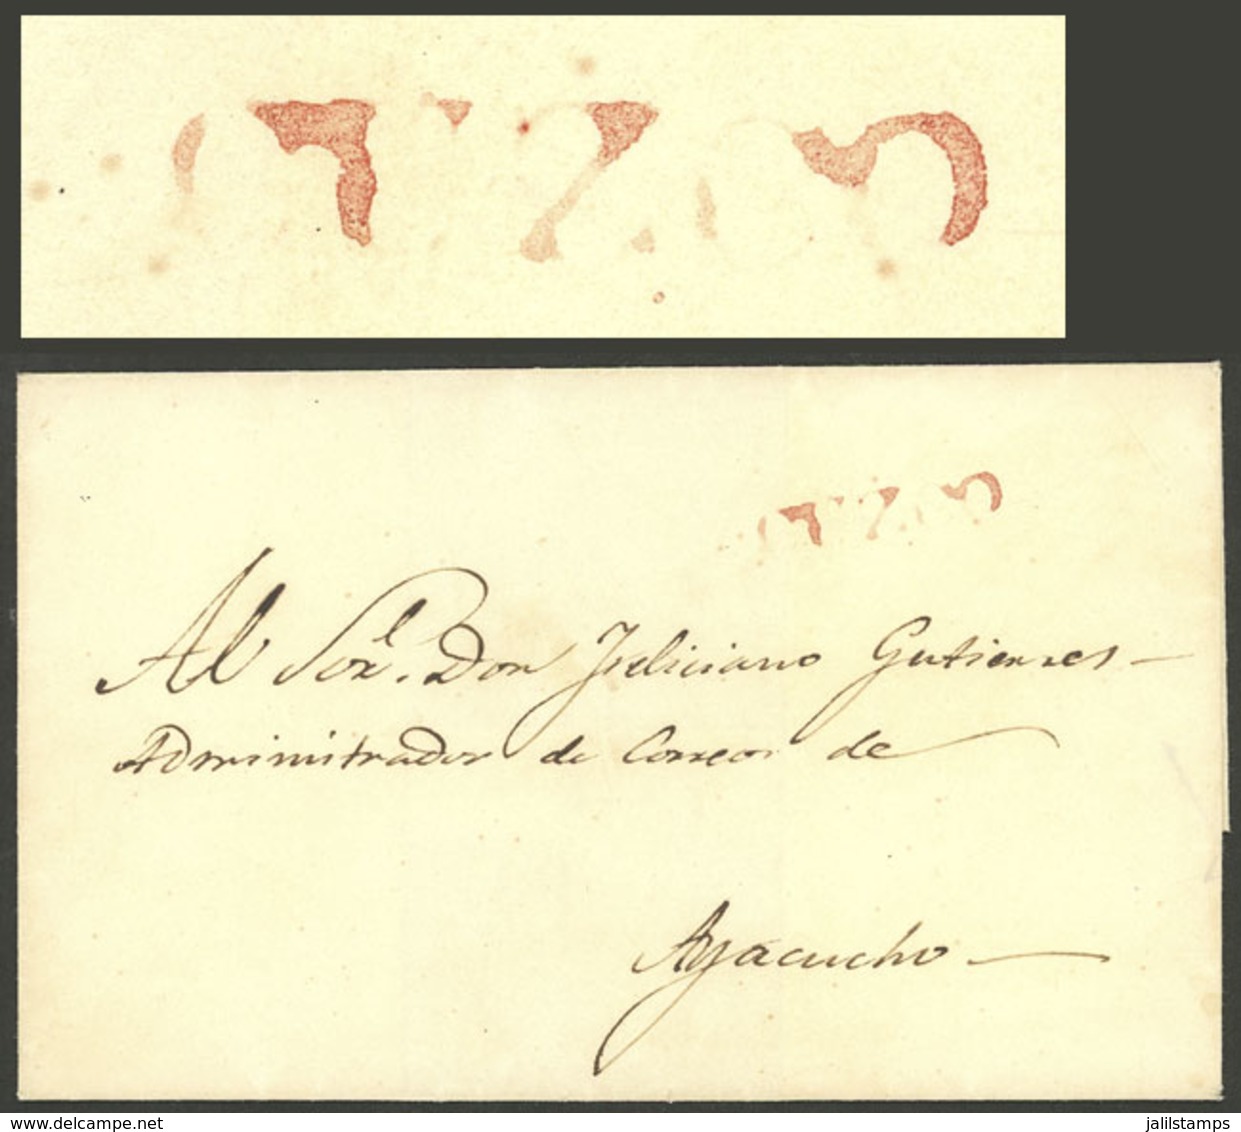 Al Sor. Don Feliciano Gutierres
Administrador de Correos de
Ayacucho
www.delcampe.net
jalilstamps